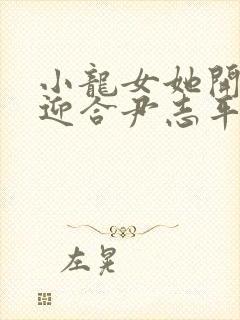 小龍女她開
迎合尹志平
左晃